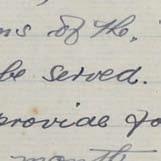 of the.
be served.
provide
month